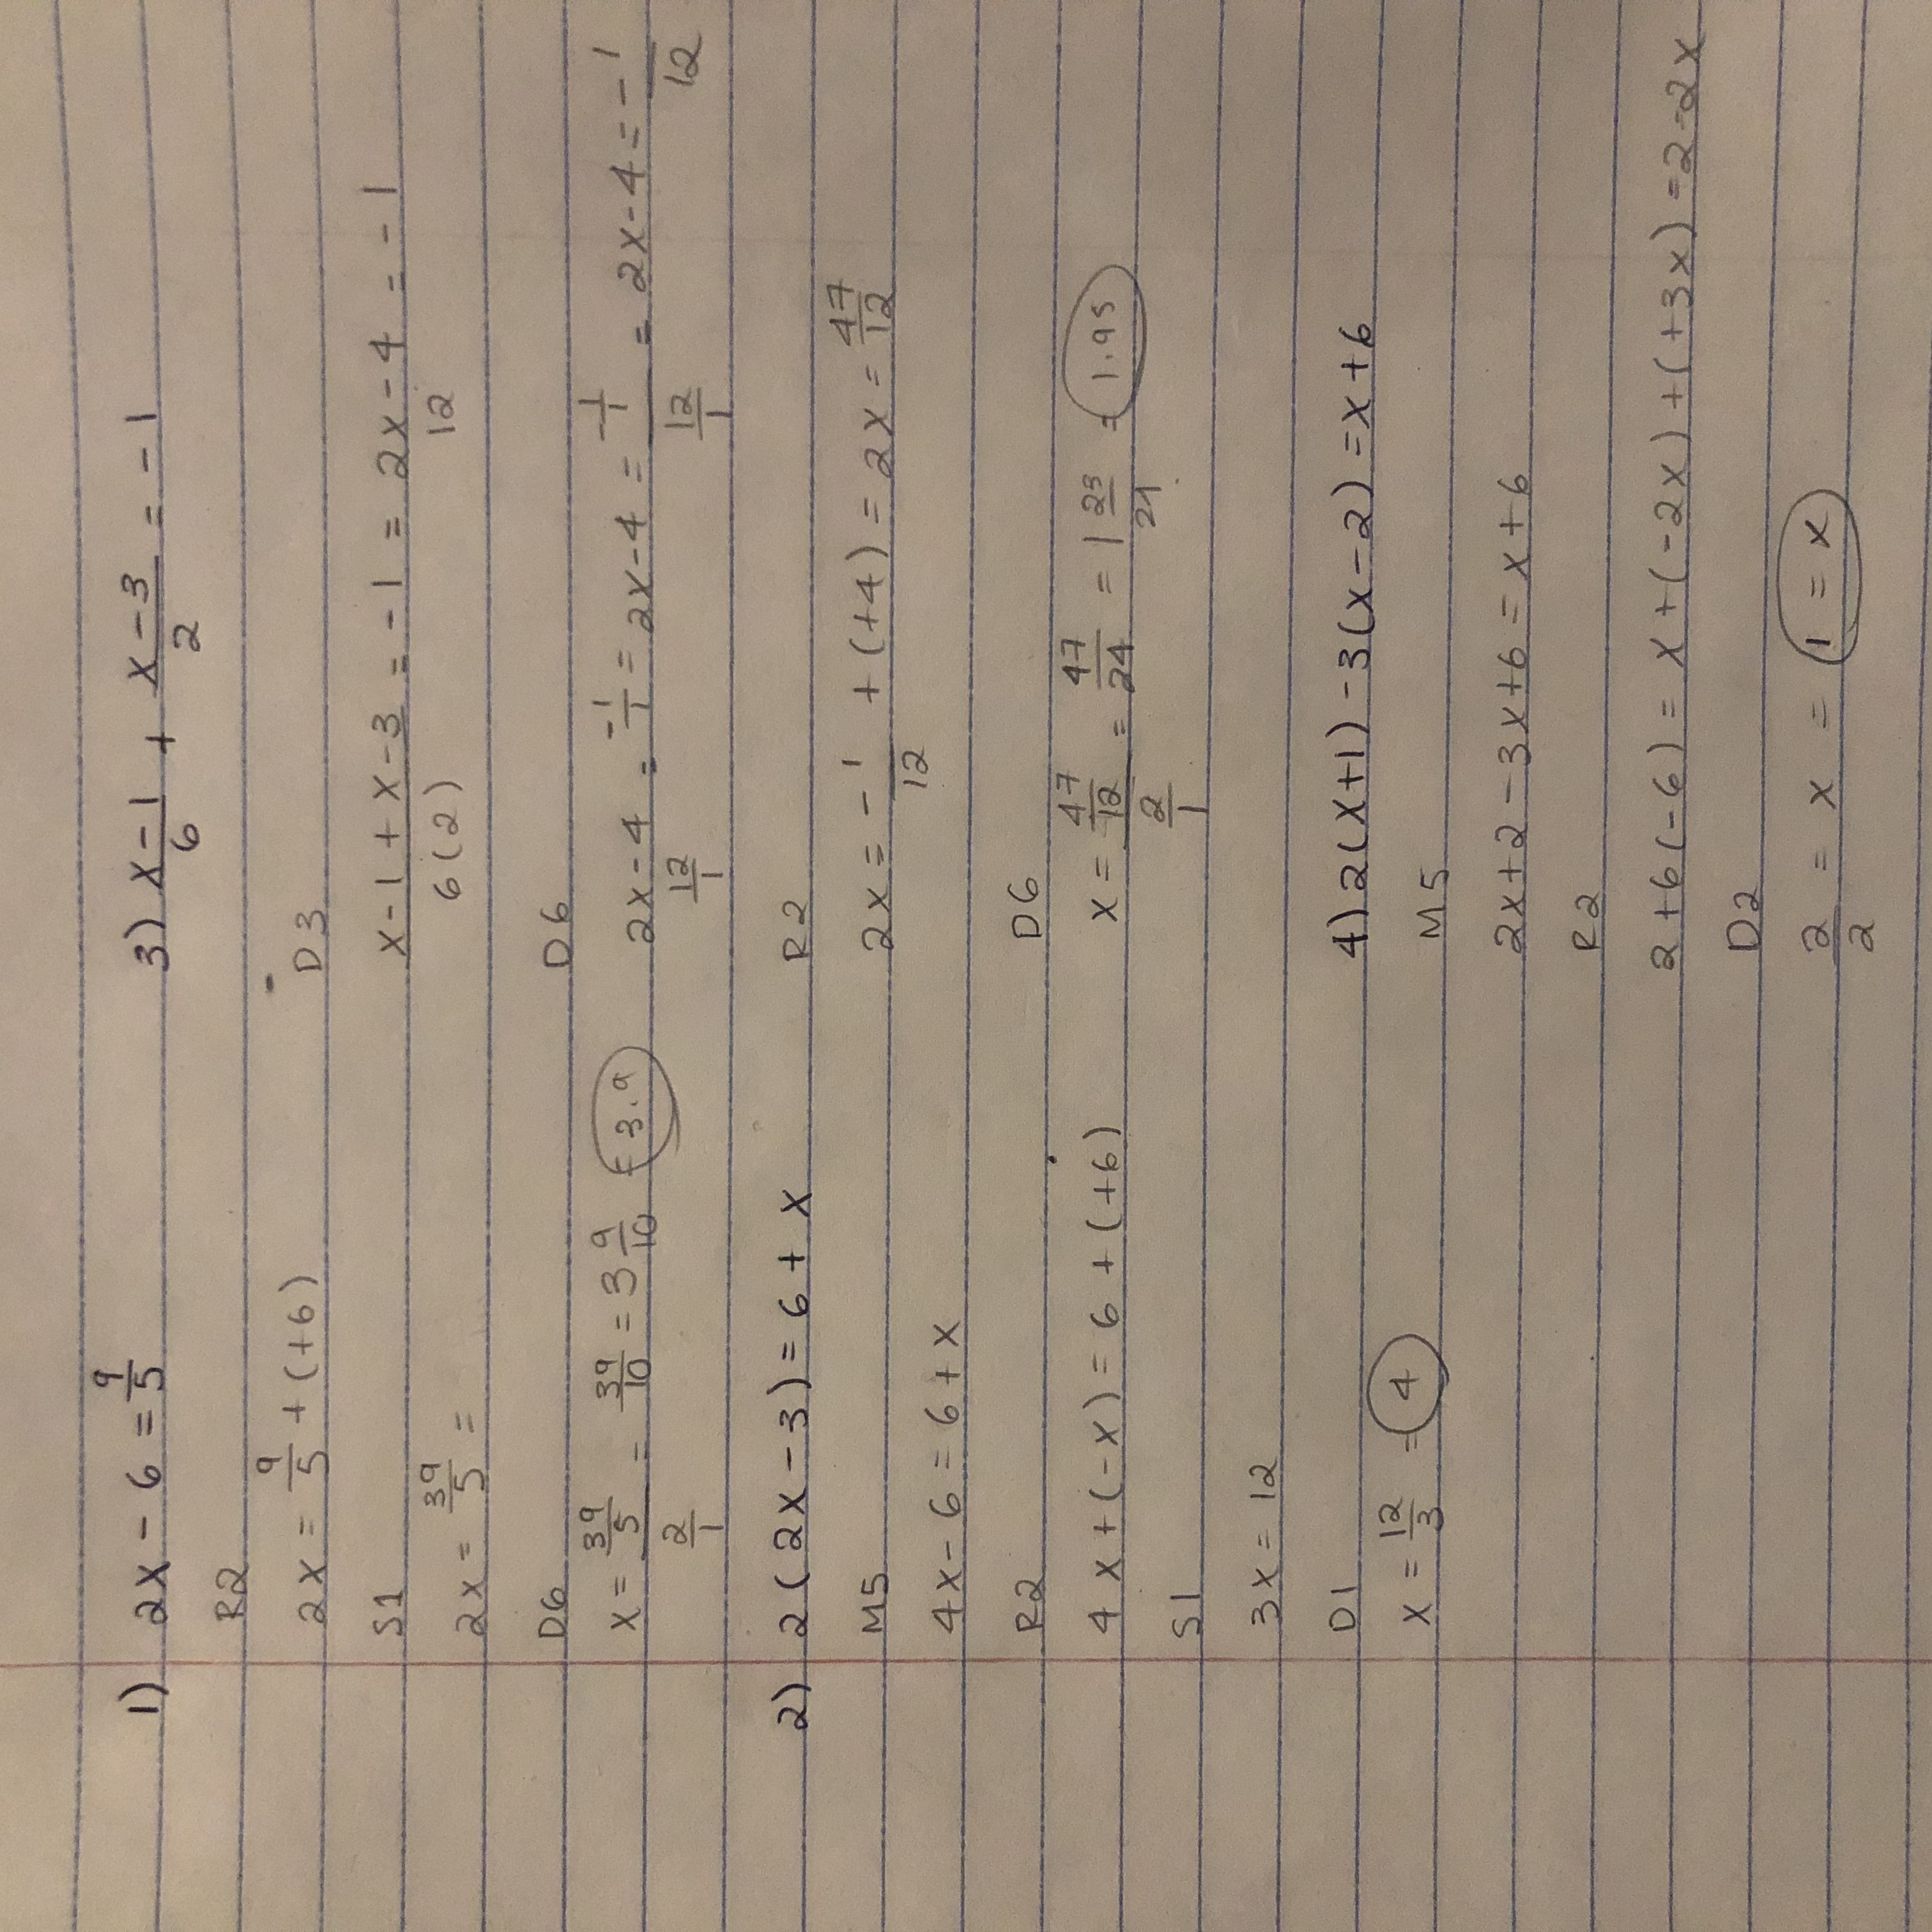 1) 2x - 6 = 9/5
R2
2x = 9/5 + (+6)
S1
2x = 39/5 =
D6
x = (39/5)/(2/1) = 39/10 = 3 9/10 = 3.9
2) 2(2x-3) = 6 + x
M5
4x - 6 = 6 + x
R2
4x + (-x) = 6 + (+6)
S1
3x = 12
D1
x = 12/3 = 4
3) (x-1)/6 + (x-3)/2 = -1
D3
(x-1+x-3)/(6(2)) = -1 = (2x-4)/12 = -1
D6
(2x-4)/(12/1) = -1/1 = 2x-4 = (-1/1)/(12/1) = 2x-4 = -1/12
R2
2x = -1/12 + (+4) = 2x = 47/12
D6
x = (47/12)/(2/1) = 47/24 = 1 23/24 = 1.95
4) 2(x+1) - 3(x-2) = x+6
M5
2x+2-3x+6 = x+6
R2
2+6(-6) = x+(-2x)+(+3x) = 2=2x
D2
2/2 = x = 1 = x